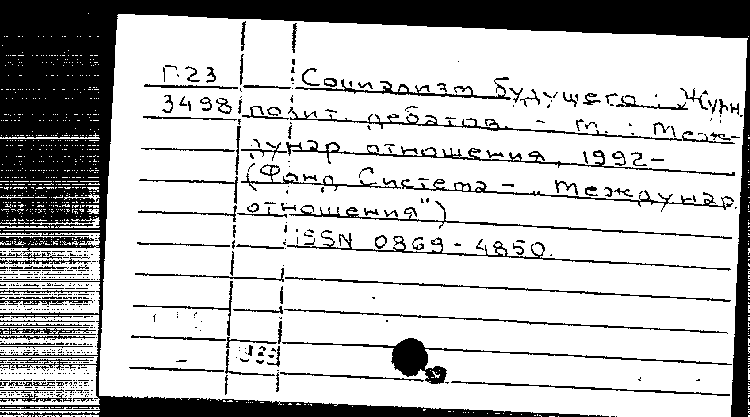 П23 Социализм будущего : Журн.
3498 полит. дебатов. - М. : Меж-
дунар. отношения, 1992-
(Фонд Система - „Междунар.
отношения")
ISSN 0869-4850.